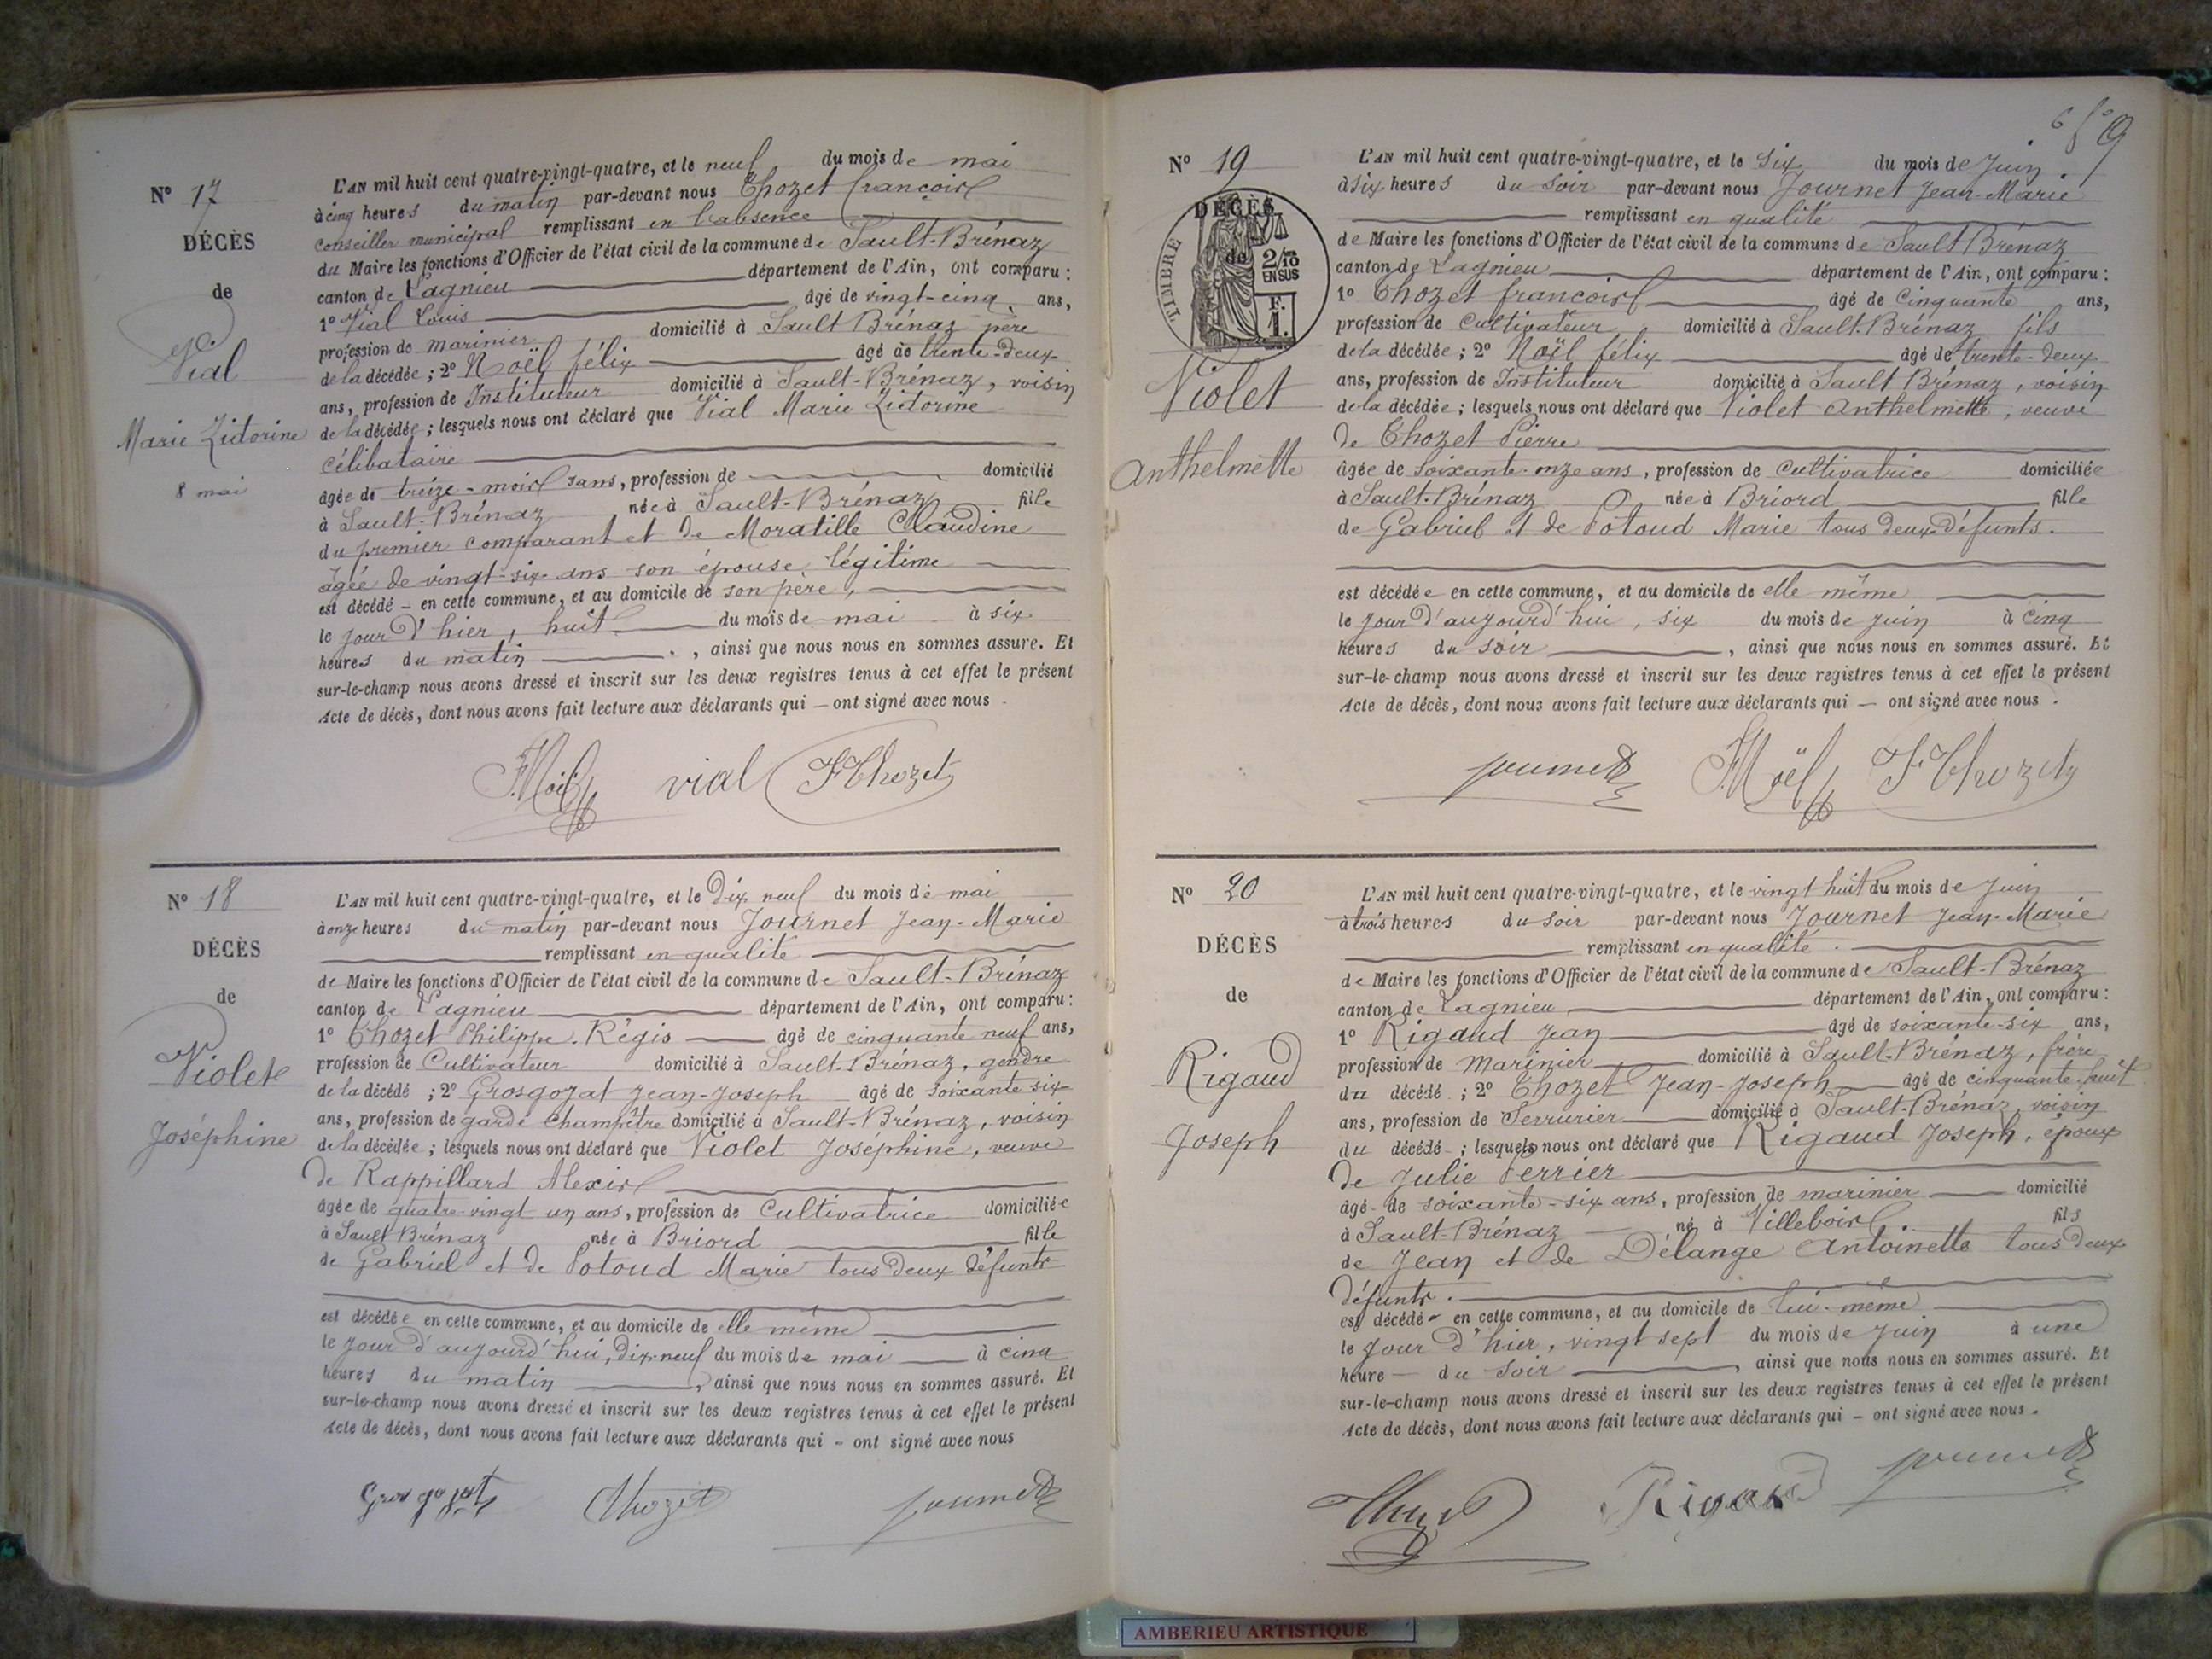 N° 17
DÉCÈS
de
Vial
Marie Zidorine
8 mai
L'AN mil huit cent quatre-vingt-quatre, et le neuf du mois de mai
à cinq heures du matin par-devant nous Thozet françois
conseiller municipal remplissant en l'absence
du Maire les fonctions d'Officier de l'état civil de la commune de Sault-Brénaz
canton de Lagnieu département de l'Ain, ont comparu :
1° Vial Louis âgé de vingt-cinq ans,
profession de marinier domicilié à Sault Brénaz père
de la décédée ; 2° Noël félix âgé de trente-deux
ans, profession de Instituteur domicilié à Sault-Brénaz, voisin
de la décédée ; lesquels nous ont déclaré que Vial Marie Zidorine
célibataire
âgée de treize-mois sans, profession de domicilié
à Sault-Brénaz née à Sault-Brénaz fille
du premier comparant et de Moratille Claudine
âgée de vingt-six ans son épouse légitime
est décédé - en cette commune, et au domicile de son père,
le jour d'hier, huit du mois de mai à six
heures du matin , ainsi que nous nous en sommes assuré. Et
sur-le-champ nous avons dressé et inscrit sur les deux registres tenus à cet effet le présent
Acte de décès, dont nous avons fait lecture aux déclarants qui - ont signé avec nous
F. Noël vial F Thozet
N° 18
DÉCÈS
de
Violet
Joséphine
L'AN mil huit cent quatre-vingt-quatre, et le Dix neuf du mois de mai
à onze heures du matin par-devant nous Journet Jean-Marie
remplissant en qualité
de Maire les fonctions d'Officier de l'état civil de la commune de Sault-Brénaz
canton de Lagnieu département de l'Ain, ont comparu :
1° Thozet Philippe-Régis âgé de cinquante neuf ans,
profession de Cultivateur domicilié à Sault-Brénaz, gendre
de la décédé ; 2° Grosgojat Jean-Joseph âgé de soixante six
ans, profession de garde champêtre domicilié à Sault-Brénaz, voisin
de la décédée ; lesquels nous ont déclaré que Violet Joséphine, veuve
de Rappillard Alexis
âgée de quatre-vingt un ans, profession de Cultivatrice domiciliée
à Sault Brénaz née à Briord fille
de Gabriel et de Potoud Marie tous deux défunts
est décédée en cette commune, et au domicile de elle même
le jour d'aujourd'hui, dix-neuf du mois de mai à cinq
heures du matin , ainsi que nous nous en sommes assuré. Et
sur-le-champ nous avons dressé et inscrit sur les deux registres tenus à cet effet le présent
Acte de décès, dont nous avons fait lecture aux déclarants qui - ont signé avec nous
Grosgojat Thozet Journet
N° 19
DÉCÈS
de
TIMBRE
2/10
EN SUS
F.
1.
Violet
Anthelmette
L'AN mil huit cent quatre-vingt-quatre, et le Six du mois de Juin
à six heures du soir par-devant nous Journet Jean-Marie
remplissant en qualité
de Maire les fonctions d'Officier de l'état civil de la commune de Sault Brénaz
canton de Lagnieu département de l'Ain, ont comparu :
1° Thozet françois âgé de Cinquante ans,
profession de Cultivateur domicilié à Sault-Brénaz fils
de la décédée ; 2° Noël félix âgé de trente-deux
ans, profession de Instituteur domicilié à Sault Brénaz, voisin
de la décédée ; lesquels nous ont déclaré que Violet Anthelmette, veuve
de Thozet Pierre
âgée de soixante-onze ans, profession de cultivatrice domiciliée
à Sault-Brénaz née à Briord fille
de Gabriel et de Potoud Marie tous deux défunts.
est décédée en cette commune, et au domicile de elle même
le jour d'aujourd'hui, six du mois de juin à cinq
heures du soir , ainsi que nous nous en sommes assuré. Et
sur-le-champ nous avons dressé et inscrit sur les deux registres tenus à cet effet le présent
Acte de décès, dont nous avons fait lecture aux déclarants qui - ont signé avec nous.
Journet F. Noël F Thozet
N° 20
DÉCÈS
de
Rigaud
Joseph
L'AN mil huit cent quatre-vingt-quatre, et le vingt huit du mois de Juin
à trois heures du soir par-devant nous Journet Jean-Marie
remplissant en qualité.
de Maire les fonctions d'Officier de l'état civil de la commune de Sault-Brénaz
canton de Lagnieu département de l'Ain, ont comparu :
1° Rigaud Jean âgé de soixante-six ans,
profession de marinier domicilié à Sault-Brénaz, frère
du décédé ; 2° Thozet Jean-Joseph âgé de cinquante-huit
ans, profession de Serrurier domicilié à Sault-Brénaz, voisin
du décédé ; lesquels nous ont déclaré que Rigaud Joseph, époux
de Julie Perrier
âgé de soixante-six ans, profession de marinier domicilié
à Sault-Brénaz né à Villebois fils
de Jean et de Délange Antoinette tous deux
défunts.
est décédé en cette commune, et au domicile de lui-même
le jour d'hier, vingt sept du mois de juin à une
heure du soir , ainsi que nous nous en sommes assuré. Et
sur-le-champ nous avons dressé et inscrit sur les deux registres tenus à cet effet le présent
Acte de décès, dont nous avons fait lecture aux déclarants qui - ont signé avec nous.
Thozet Rigaud Journet
AMBERIEU ARTISTIQUE